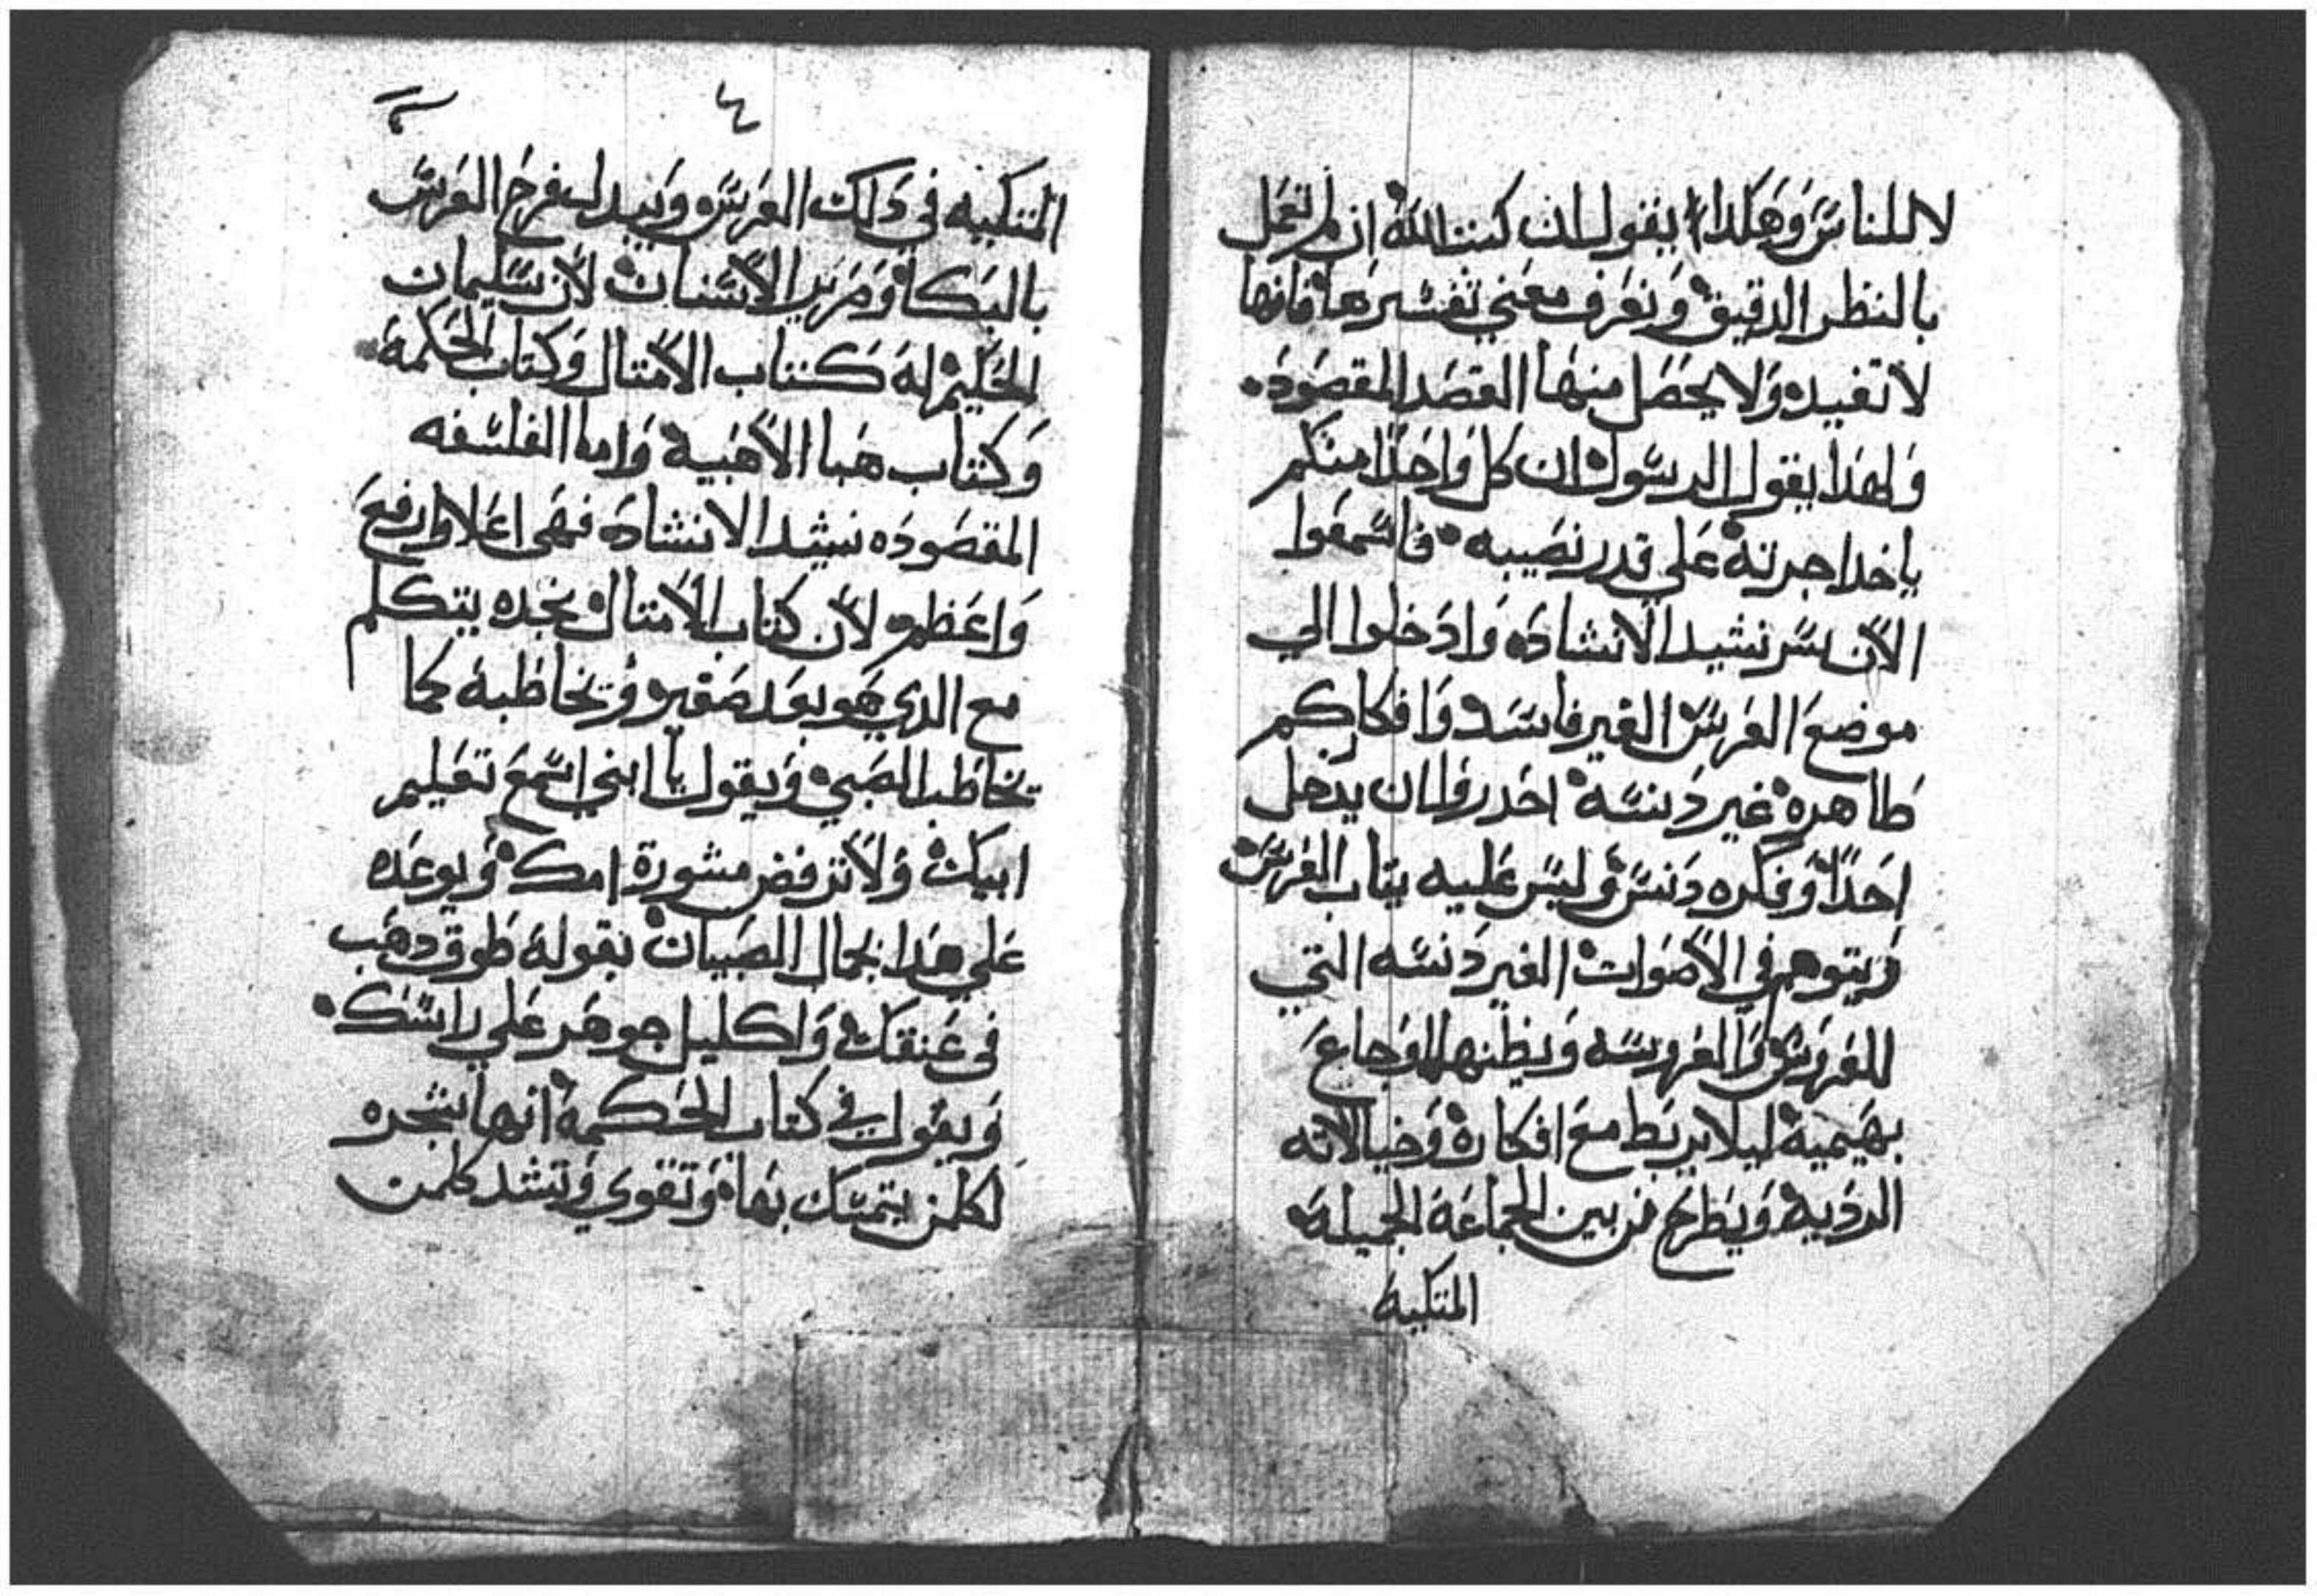 لا للناس وهكذا يقول ان كتب الله ان لم تعمل
بالنظر الدقيق ونعرف معني تفسيرها فانها
لا تفيد ولا يحصل منها القصد المقصود.
ولهذا يقول الرسول ان كل واحدًا منكم
ياخد اجرته علي قدر نصيبه فاسمعوا
الآن سر نشيد الانشاد وادخلوا الي
موضع العرس الغير فاسد وافكاركم
طاهره غير دنسه احدروا ان يدخل
احدًا وفكره دنس وليس عليه تياب العرس
ويتوهم في الاصوات الغير دنسه التي
للعروس والعروسه ويظنها اوجاع
بهيمية ليلا يربط مع افكاره وخيالاته
الرديه ويطرح من بين الجماعة الجميلة
المتكيه
٤
المتكيه في دلك العرس ويبدل فرح العرس
بالبكا وصرير الاسنان لان سليمان
الحكيم له كتاب الامتال وكتاب الحكمة.
وكتاب هبا الاهبية واما الفلسفه
المقصوده نشيد الانشاد فهي اعلا وارفع
واعظم لان كتاب الامتال نجده يتكلم
مع الدي هو بعد صغير ويخاطبه كما
يخاطب الصبي ويقول يا ابني اسمع تعليم
ابيك ولا ترفض مشورة امك ويوعده
علي هدا بحال الصبيان بقوله طوق دهب
في عنقك واكليل جوهر علي راسك.
ويقول في كتاب الحكمة انها شجره
لكلمن يتمسك بها وتقوي وتشد كلمن